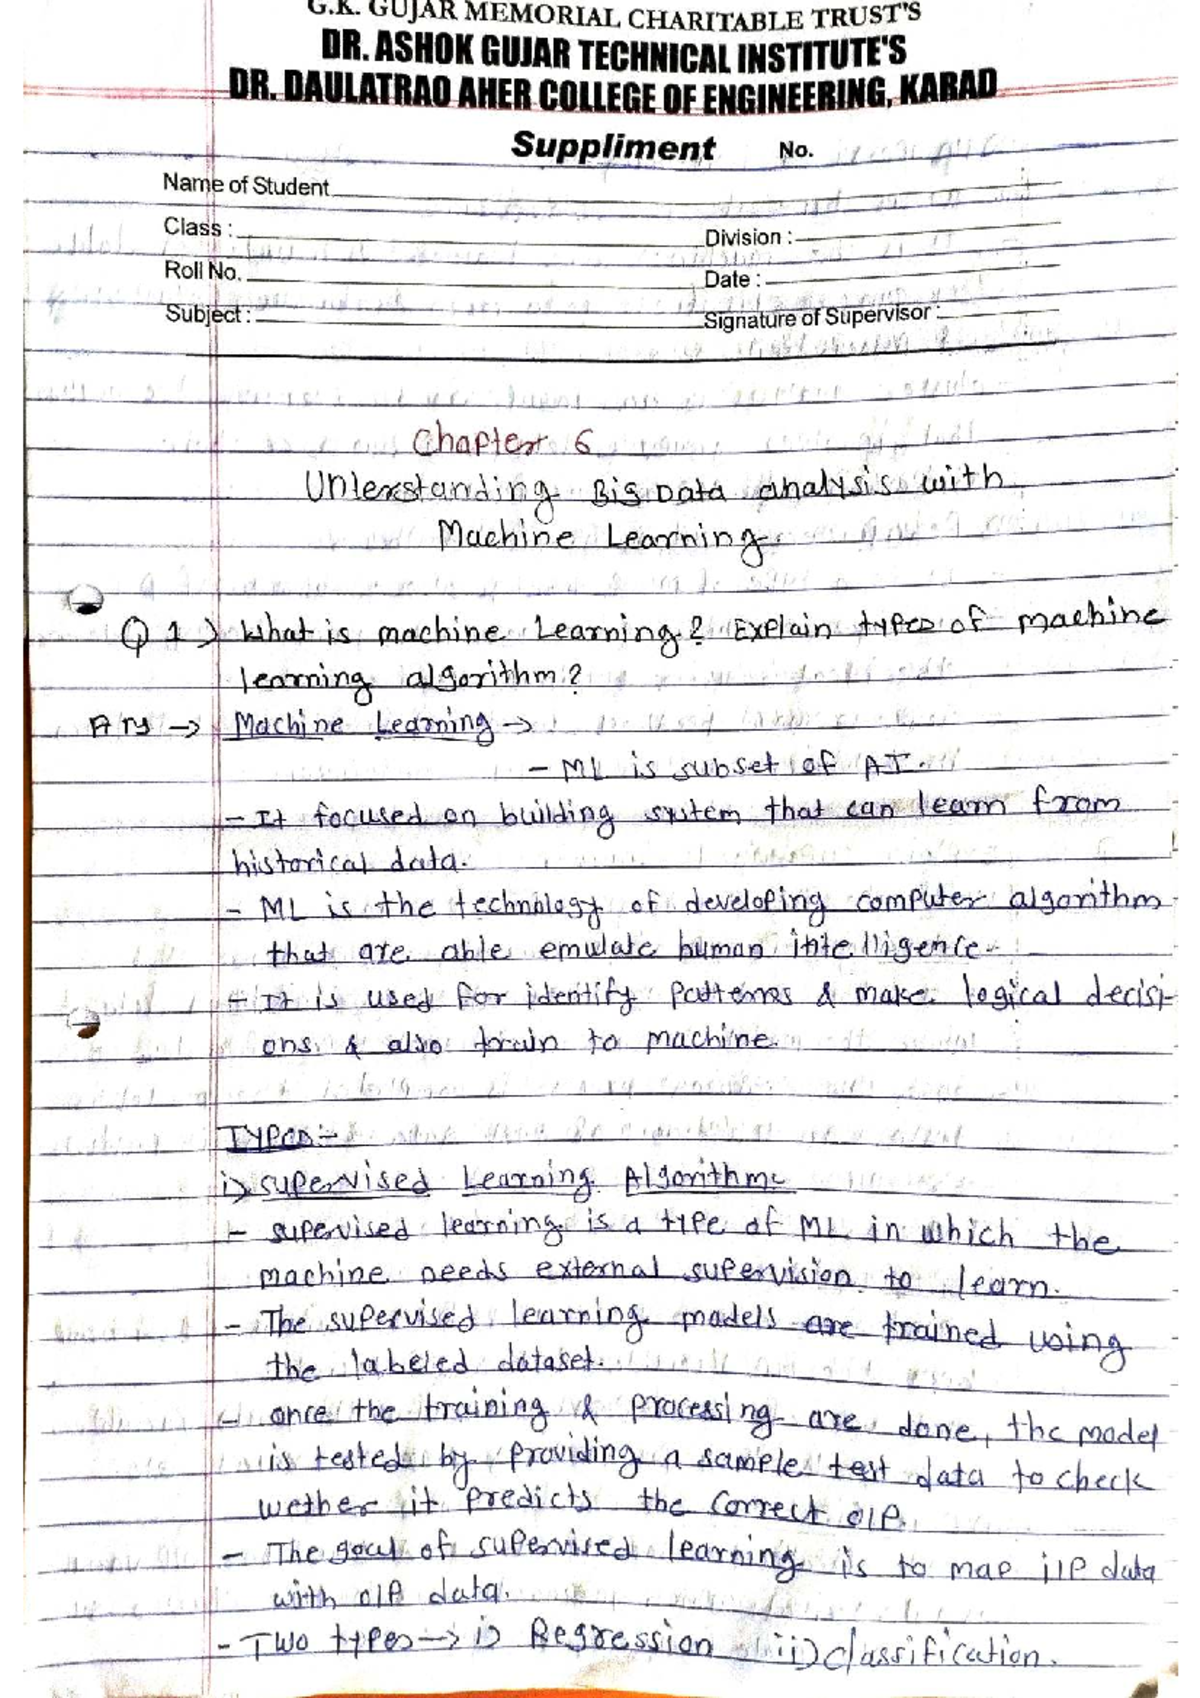 G.K. GUJAR MEMORIAL CHARITABLE TRUST'S
DR. ASHOK GUJAR TECHNICAL INSTITUTE'S
DR. DAULATRAO AHER COLLEGE OF ENGINEERING, KARAD
Suppliment No.
Name of Student
Class :
Division :
Roll No.
Date :
Subject :
Signature of Supervisor :
Chapter 6
Understanding Big Data analysis with
Machine Learning
Q 1) What is machine Learning? Explain types of machine
learning algorithm?
Ans → Machine Learning →
- ML is subset of AI.
- It focused on building system that can learn from
historical data.
- ML is the technology of developing computer algorithm
that are able emulate human intelligence.
- It is used for identify patterns & make logical decisi-
ons & also train to machine.
Types:-
i) supervised Learning Algorithm:
- supervised learning is a type of ML in which the
machine needs external supervision to learn.
- The supervised learning models are trained using
the labeled dataset.
- once the training & processing are done, the model
is tested by providing a sample test data to check
wether it predicts the correct o/p.
- The goal of supervised learning is to map i/p data
with o/p data.
- Two types → i) Regression ii) classification.